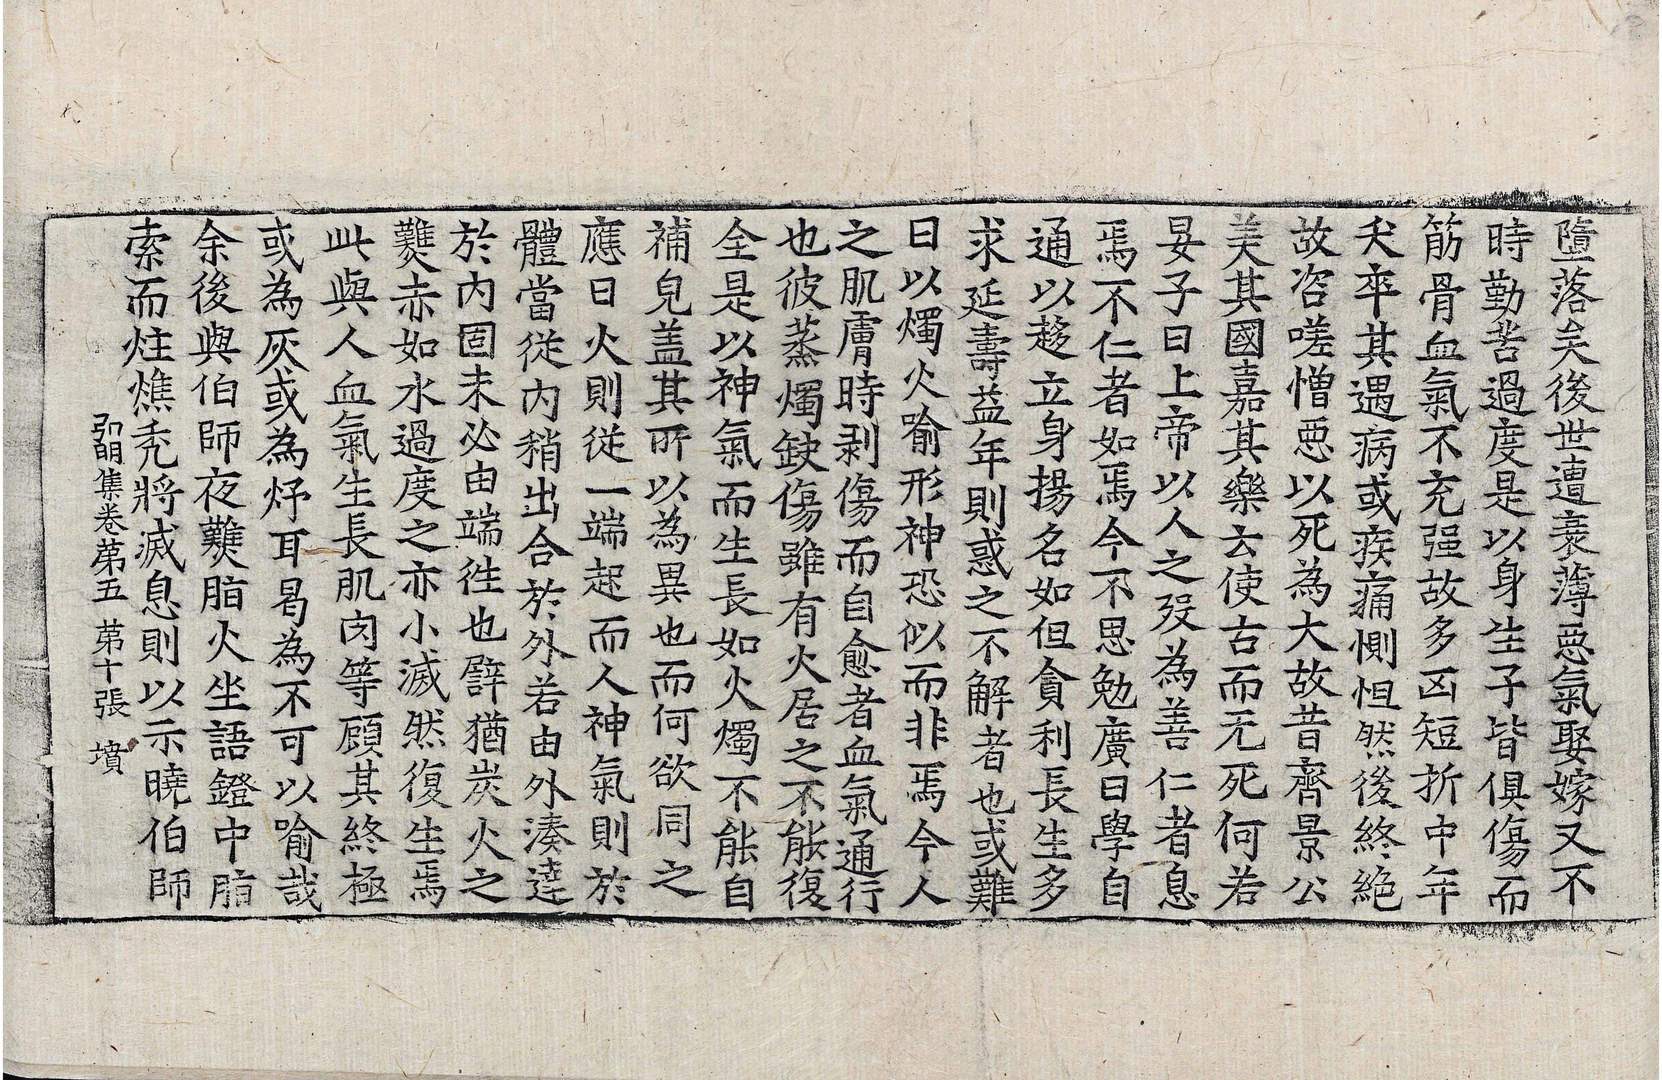 墮落矣後世遭衰薄惡氣娶嫁又不
時勤苦過度是以身生子皆俱傷而
筋骨血氣不充强故多凶短折中年
夭卒其遇病或疾痛惻怛然後終絕
故咨嗟憎惡以死為大故昔齊景公
美其國嘉其樂云使古而无死何若
晏子曰上帝以人之歿為善仁者息
焉不仁者如焉今不思勉廣曰學自
通以趍立身揚名如但貪利長生多
求延壽益年則惑之不解者也或難
曰以燭火喻形神恐似而非焉今人
之肌膚時剥傷而自愈者血氣通行
也彼蒸燭缺傷雖有火居之不能復
全是以神氣而生長如火燭不能自
補皃盖其所以為異也而何欲同之
應曰火則從一端起而人神氣則於
體當從內稍出合於外若由外湊達
於內固未必由端往也譬猶炭火之
難赤如水過度之亦小滅然復生焉
此與人血氣生長肌肉等顧其終極
或為灰或為炧耳曷為不可以喻哉
余後與伯師夜難脂火坐語鐙中脂
索而炷燋禿將滅息則以示曉伯師
弘明集卷第五 第十張 墳